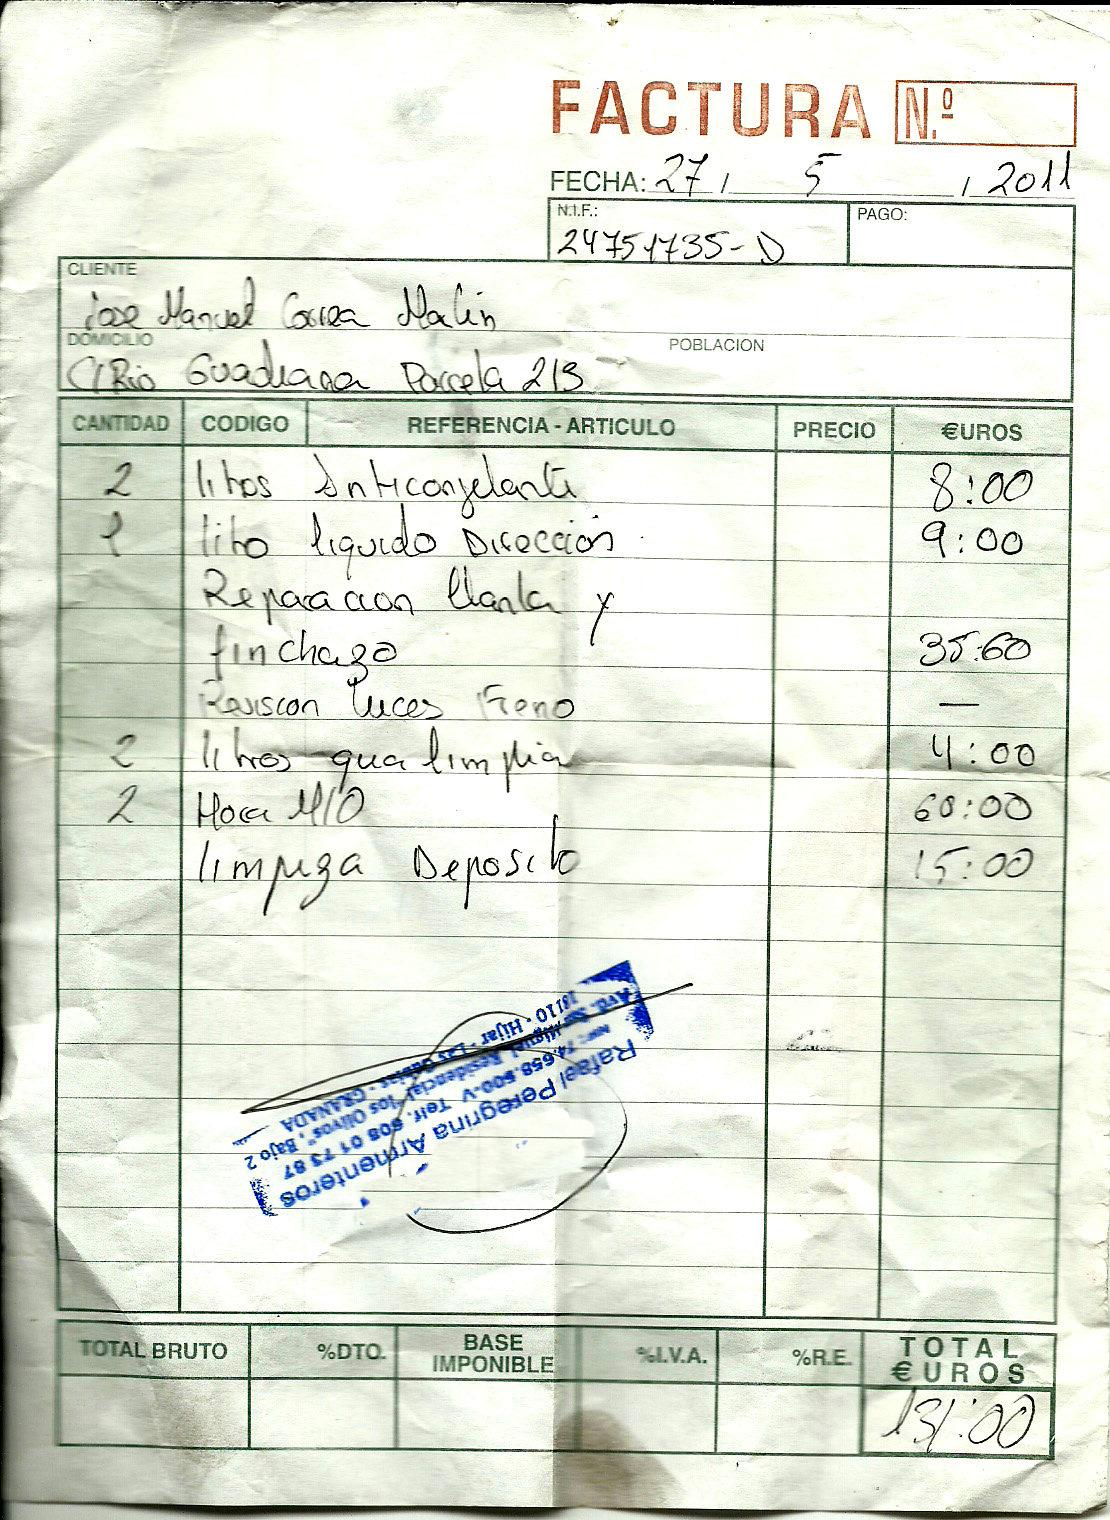 FACTURA N.º
FECHA: 27 / 5 / 2011
N.I.F.: PAGO:
24751735-D
CLIENTE
Jose Manuel Correa
DOMICILIO POBLACION
C/ Rio Guadiana Parcela 213
CANTIDAD CODIGO REFERENCIA - ARTICULO PRECIO €UROS
2 litros Anticongelante 8:00
1 litro liquido Dirección 9:00
Reparacion llanta y
pinchazo 35:60
Reviscon luces Freno —
2 litros limpia 4:00
2 Hora M/O 60:00
limpieza Deposito 15:00
Rafael Peregrina Armenteros
NIF: 74.658.500-V Telf. 608 01 73 87
Avd. San Miguel Residencial "los Olivos", Bajo 2
18110 - Hijar - Las Gabias - GRANADA
TOTAL BRUTO %DTO. BASE IMPONIBLE %I.V.A. %R.E. TOTAL €UROS
131:00